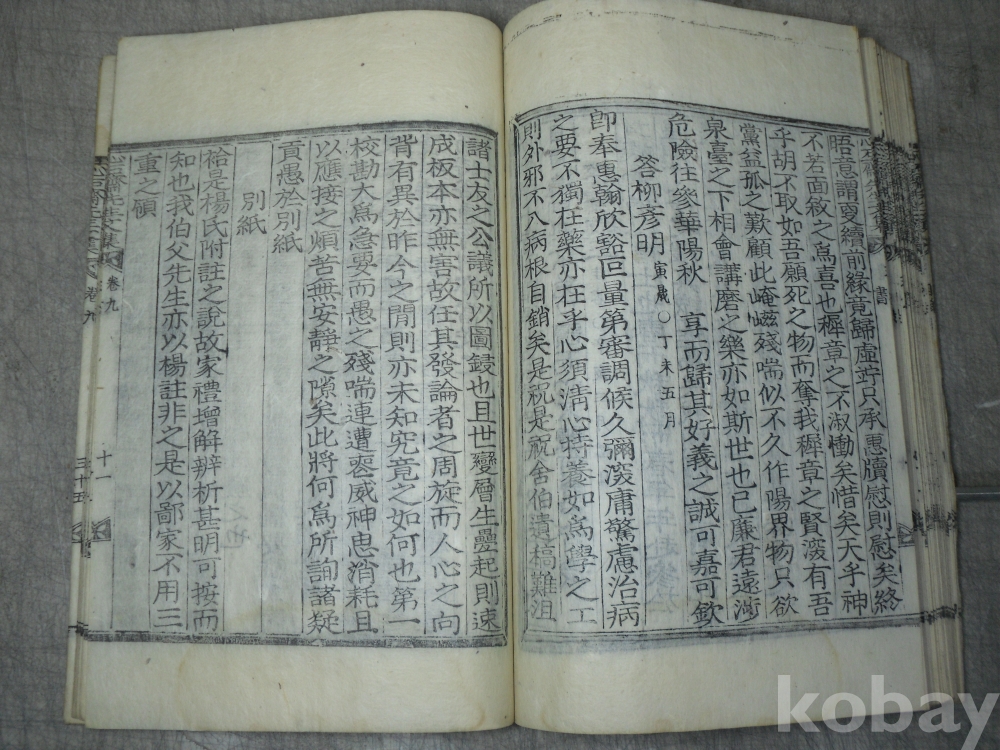 晤意謂更續前緣竟歸虛竚只承惠牘慰則慰矣終
不若面敘之爲喜也穉章之不淑慟矣惜矣大乎神
乎胡不取如吾願死之物而奪我穉章之賢浚有吾
黨益孤之歎顧此崦嵫殘喘似不久作陽界物只欲
泉臺之下相會講磨之樂亦如斯世也已廉君遠涉
危險往參華陽秋享而歸其好義之誠可嘉可欽
答柳彦明 寅晟○丁未五月
卽奉惠翰欣豁叵量第審調候久彌浚庸驚慮治病
之要不獨在藥亦在乎心須淸心恃養如爲學之工
則外邪不入病根自銷矣是祝是祝舍伯遺稿難沮
書
諸士友之公議所以圖鋟也且世變層生疊起則速
成板本亦無害故任其發論者之周旋而人心之向
背有異於昨今之間則亦未知究竟之如何也第一
校勘大爲急要而愚之殘喘連遭喪威神思消耗且
以應接之煩苦無安靜之隙矣此將何爲所詢諸疑
貢愚於別紙
別紙
祫是楊氏附註之說故家禮增解辨析甚明可按而
知也我伯父先生亦以楊註非之是以鄙家不用三
重之頎
卷九
十一
三十五
kobay